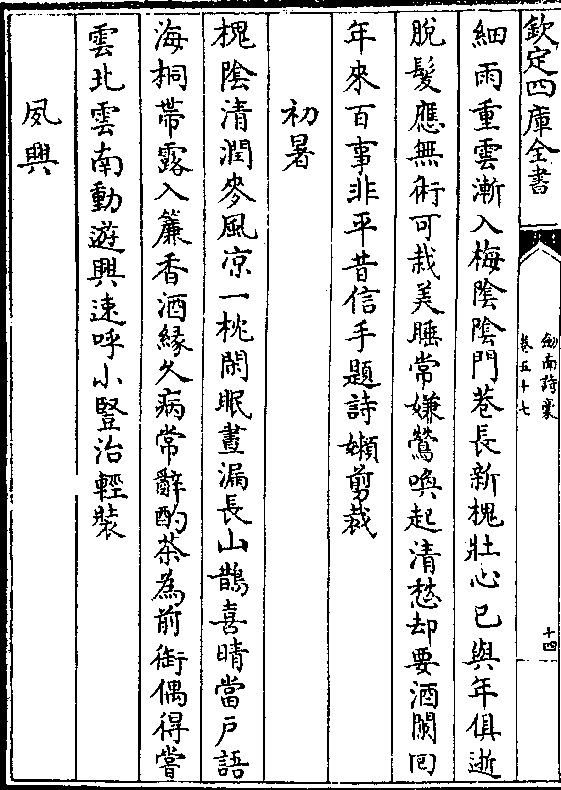 欽定四庫全書
劍南詩稾
卷五十七
十四
細雨重雲漸入梅陰陰門巷長新槐壯心已與年俱逝
脫髮應無術可栽美睡常嫌鶯喚起清愁却要酒闌回
年來百事非平昔信手題詩嬾剪裁
初暑
槐陰清潤麥風凉一枕閑眠晝漏長山鵲喜晴當户語
海桐帶露入簾香酒緣久病常辭酌茶為前銜偶得嘗
雲北雲南動遊興速呼小豎治輕裝
夙興